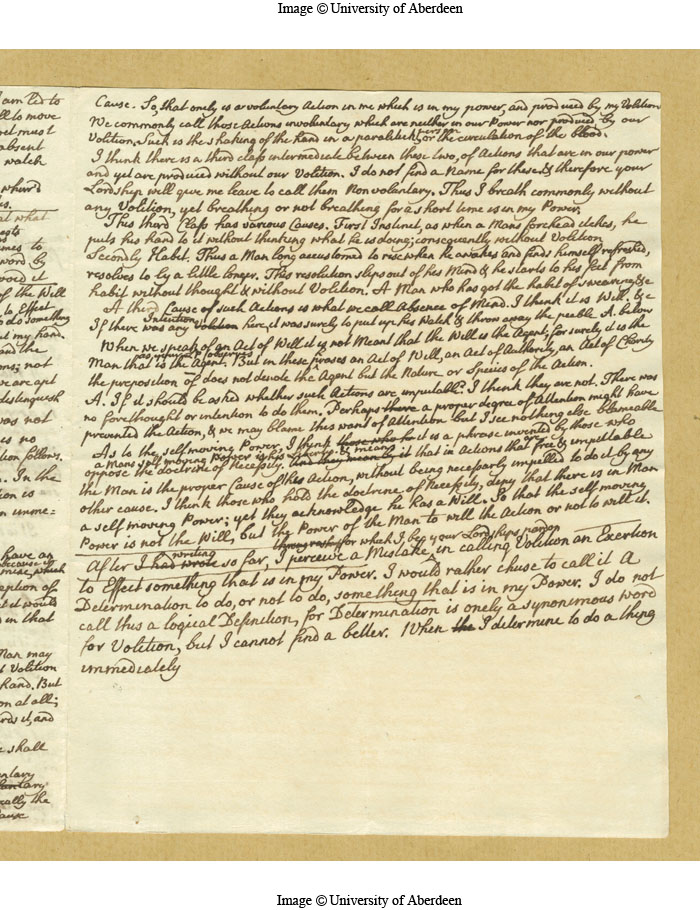 Image © University of Aberdeen
I am led to
ll to move
absent
watch
at what
mes to
word by
of the Will
to Effect
to do something
ut my hand.
and the
ons; not
we are apt
distinguish
was not
es no
tion follows.
. In the
ion is
n imme=
have an
because
eption of
t it would
s in that
Man may
t Volition
hand. But
on at all;
rds it, and
e shall
ntary
cally the
ause
Cause. So, that onely is a voluntary Action in me which is in my power, and produced by my Volition
We commonly call those Actions involuntary which are neither in our Power nor produced by our
Volition, Such is the shaking of the hand in a paralitick person or the circulation of the blood.
I think there is a third class intermediate between these two, of Actions that are in our power
and yet are produced without our Volition. I do not find a Name for these & therefore your
Lordship will give me leave to call them Nonvoluntary. Thus I breath commonly without
any Volition, yet breathing or not breathing for a short time is in my Power.
This third Class has various Causes. First Instinct, as when a Mans forehead itches, he
puts his hand to it without thinking what he is doing; consequently without Volition
Secondly Habit. Thus a Man long accustomed to rise when he awakes and finds himself refreshed,
resolves to ly a little longer. This resolution slips out of his Mind & he starts to his feet from
habit without thought & without Volition. A Man who has got the habit of swearing &c
A third Cause of such Actions is what we call Absence of Mind. I think it is Well. &c
Intention
If there was any volition here, it was surely to put up his Watch & throw away the peeble A. below
When we speak of an Act of Will it is not Meant that the Will is the Agent, for surely it is the
Man that is the Agent. But in these phrases an Act of Will, an Act of Authority, an Act of Charity
the preposition of does not denote the Agent but the Nature or Species of the Action.
A. If it should be asked whether such Actions are imputable? I think they are not. There was
no forethought or intention to do them. Perhaps there a proper degree of Attention might have
prevented the Action, & we may blame this want of Attention but I see nothing else blameable
As to the self moving Power, I think those who hel it is a phrase invented by those who
a Mans self moving power is his liberty & mean
oppose the doctrine of Necessity. and they mean by it that in Actions that are free & imputable
the Man is the proper Cause of his Action, without being necessarily impelled to do it by any
other cause. I think those who hold the doctrine of Necessity, deny that there is in Man
a self moving Power; yet they acknowledge he has a Will. So that the self moving
Power is not the Will, but the Power of the Man to will the Action or not to will it.
for which I beg your Lordships pardon
writing
After I had wrote so far, I perceive a Mistake, in calling Volition an Exertion
to Effect something that is in my Power. I would rather chuse to call it A
Determination to do, or not to do, something that is in my Power. I do not
call this a logical Definition, for Determination is onely a synonimous word
for Volition, but I cannot find a better. When the I determine to do a thing
immediately
Image © University of Aberdeen